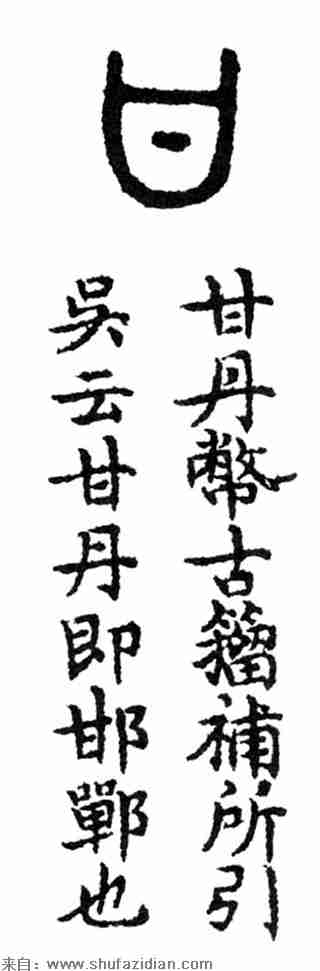 甘
甘丹幣古籀補所引
吳云甘丹即邯鄲也
来自：www.shufazidian.com